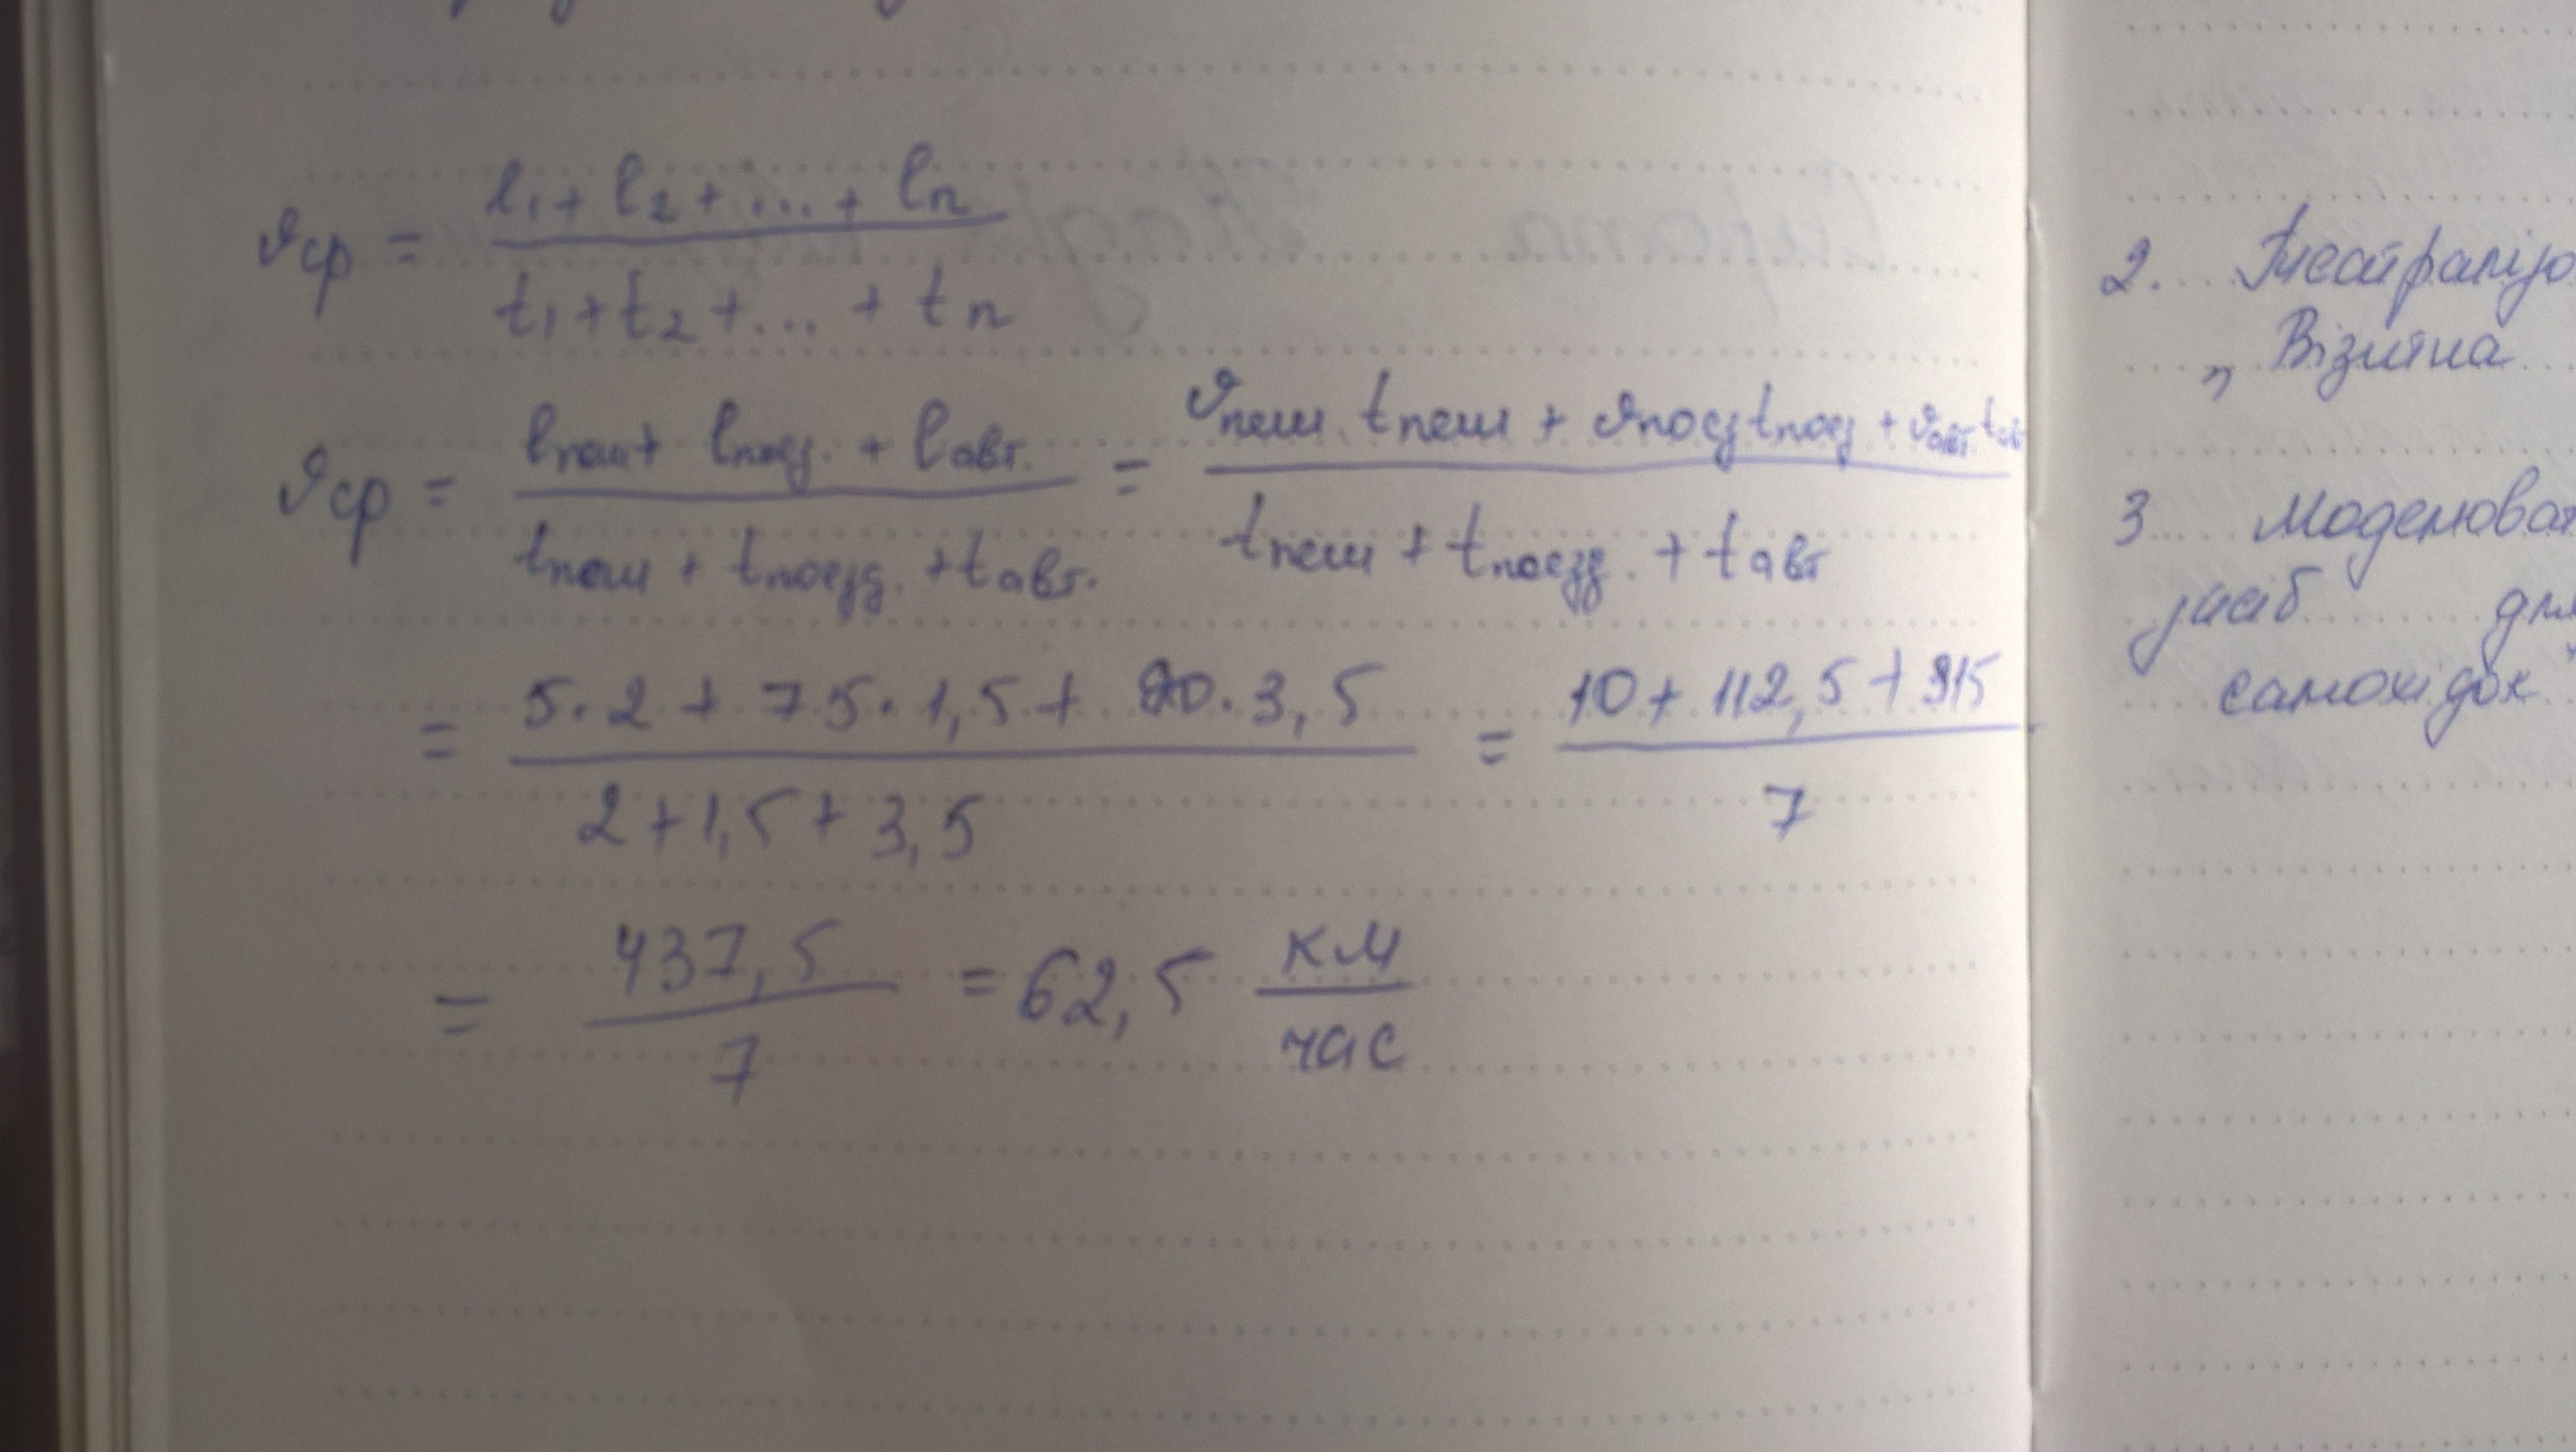 υср = (l₁ + l₂ + ... + lₙ) / (t₁ + t₂ + ... + tₙ)
υср = (lпеш + lпоезд. + lавт.) / (tпеш + tпоезд. + tавт.) = (υпеш tпеш + υпоезд tпоезд + υавт. tавт) / (tпеш + tпоезд. + tавт)
= (5·2 + 75·1,5 + 90·3,5) / (2 + 1,5 + 3,5) = (10 + 112,5 + 315) / 7
= 437,5 / 7 = 62,5 км / час
2.
„ Візитна
3 Моделюват
засіб для
самохідок"